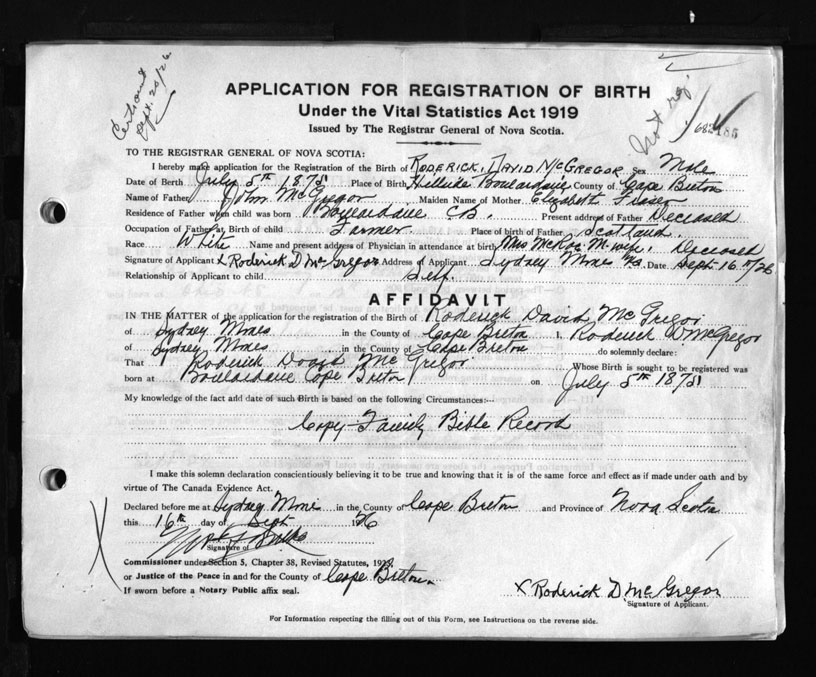 Cert sent
Sept. 20/26
Not reg.
APPLICATION FOR REGISTRATION OF BIRTH
Under the Vital Statistics Act 1919
Issued by The Registrar General of Nova Scotia.
TO THE REGISTRAR GENERAL OF NOVA SCOTIA:
I hereby make application for the Registration of the Birth of RODERICK, DAVID McGREGOR Sex Male
Date of Birth July 5th 1875 Place of Birth Hillside Boulardarie County of Cape Breton
Name of Father John McGregor Maiden Name of Mother Elizabeth Fraser
Residence of Father when child was born Boulardarie CB. Present address of Father Deceased
Occupation of Father at Birth of child Farmer Place of birth of Father Scotland.
Race White Name and present address of Physician in attendance at birth Mrs McRae M.wife, Deceased
Signature of Applicant X Roderick D McGregor Address of Applicant Sydney Mines NS Date Sept 16th/26
Relationship of Applicant to child Self.
AFFIDAVIT
IN THE MATTER of the application for the registration of the Birth of Roderick David McGregor
of Sydney Mines in the County of Cape Breton I, Roderick D McGregor
of Sydney Mines in the County of Cape Breton do solemnly declare:
That Roderick David McGregor Whose Birth is sought to be registered was
born at Boulardarie Cape Breton on July 5th 1875
My knowledge of the fact and date of such Birth is based on the following Circumstances:—
Copy Family Bible Record
I make this solemn declaration conscientiously believing it to be true and knowing that it is of the same force and effect as if made under oath and by
virtue of The Canada Evidence Act.
Declared before me at Sydney Mines in the County of Cape Breton and Province of Nova Scotia
this 16th day of Sept 1926
Signature of
Commissioner under Section 5, Chapter 38, Revised Statutes, 1923.
or Justice of the Peace in and for the County of Cape Breton
If sworn before a Notary Public affix seal.
X Roderick D McGregor
Signature of Applicant.
For Information respecting the filling out of this Form, see Instructions on the reverse side.